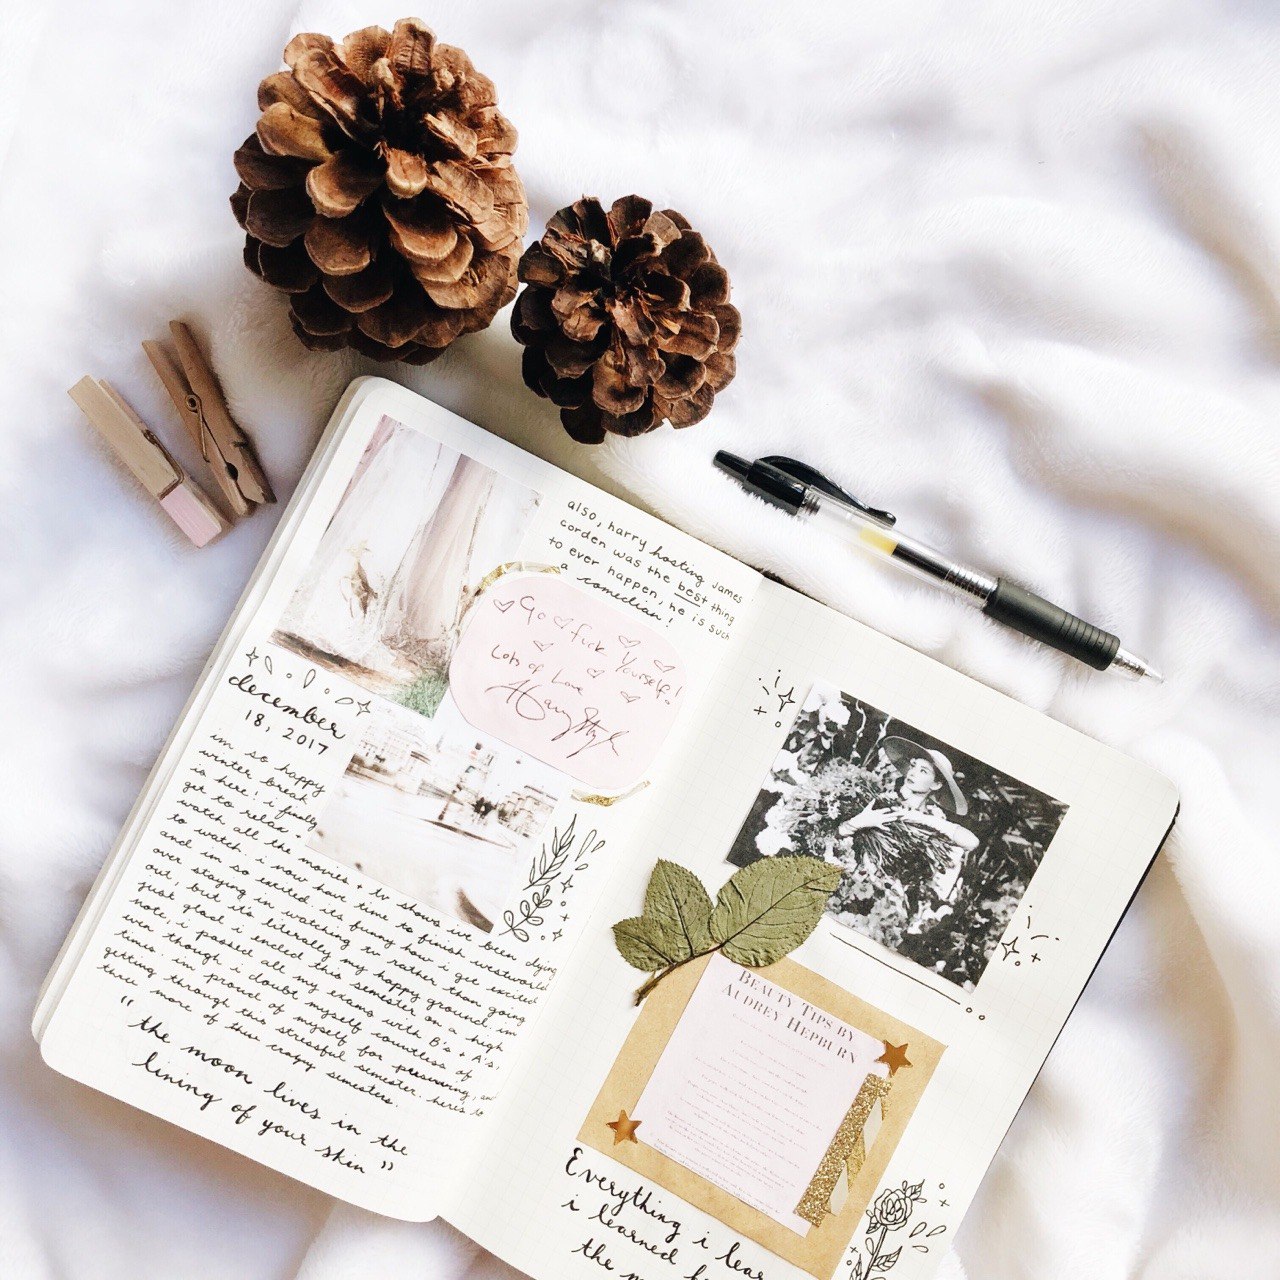 also, harry hosting james
corden was the best thing
to ever happen, he is such
a comedian!
Go fuck Yourself!
Lots of Love
december
18, 2017
im so happy
winter break
is here! i finally
get to relax +
watch all the movies + tv shows i've been dying
to watch. i now have time to finish westworld
and im so excited. its funny how i get excited
over staying in watching tv rather than going
out, but its literally my happy ground. im
just glad i ended this semester on a high
note, i passed all my exams with B's + A's,
even though i doubt myself countless of
times. im proud of myself for persevering, and
getting through this stressful semester. here's to
three more of these crappy semesters.
"the moon lives in the
lining of your skin"
BEAUTY TIPS BY
AUDREY HEPBURN
Everything i
i learned
the